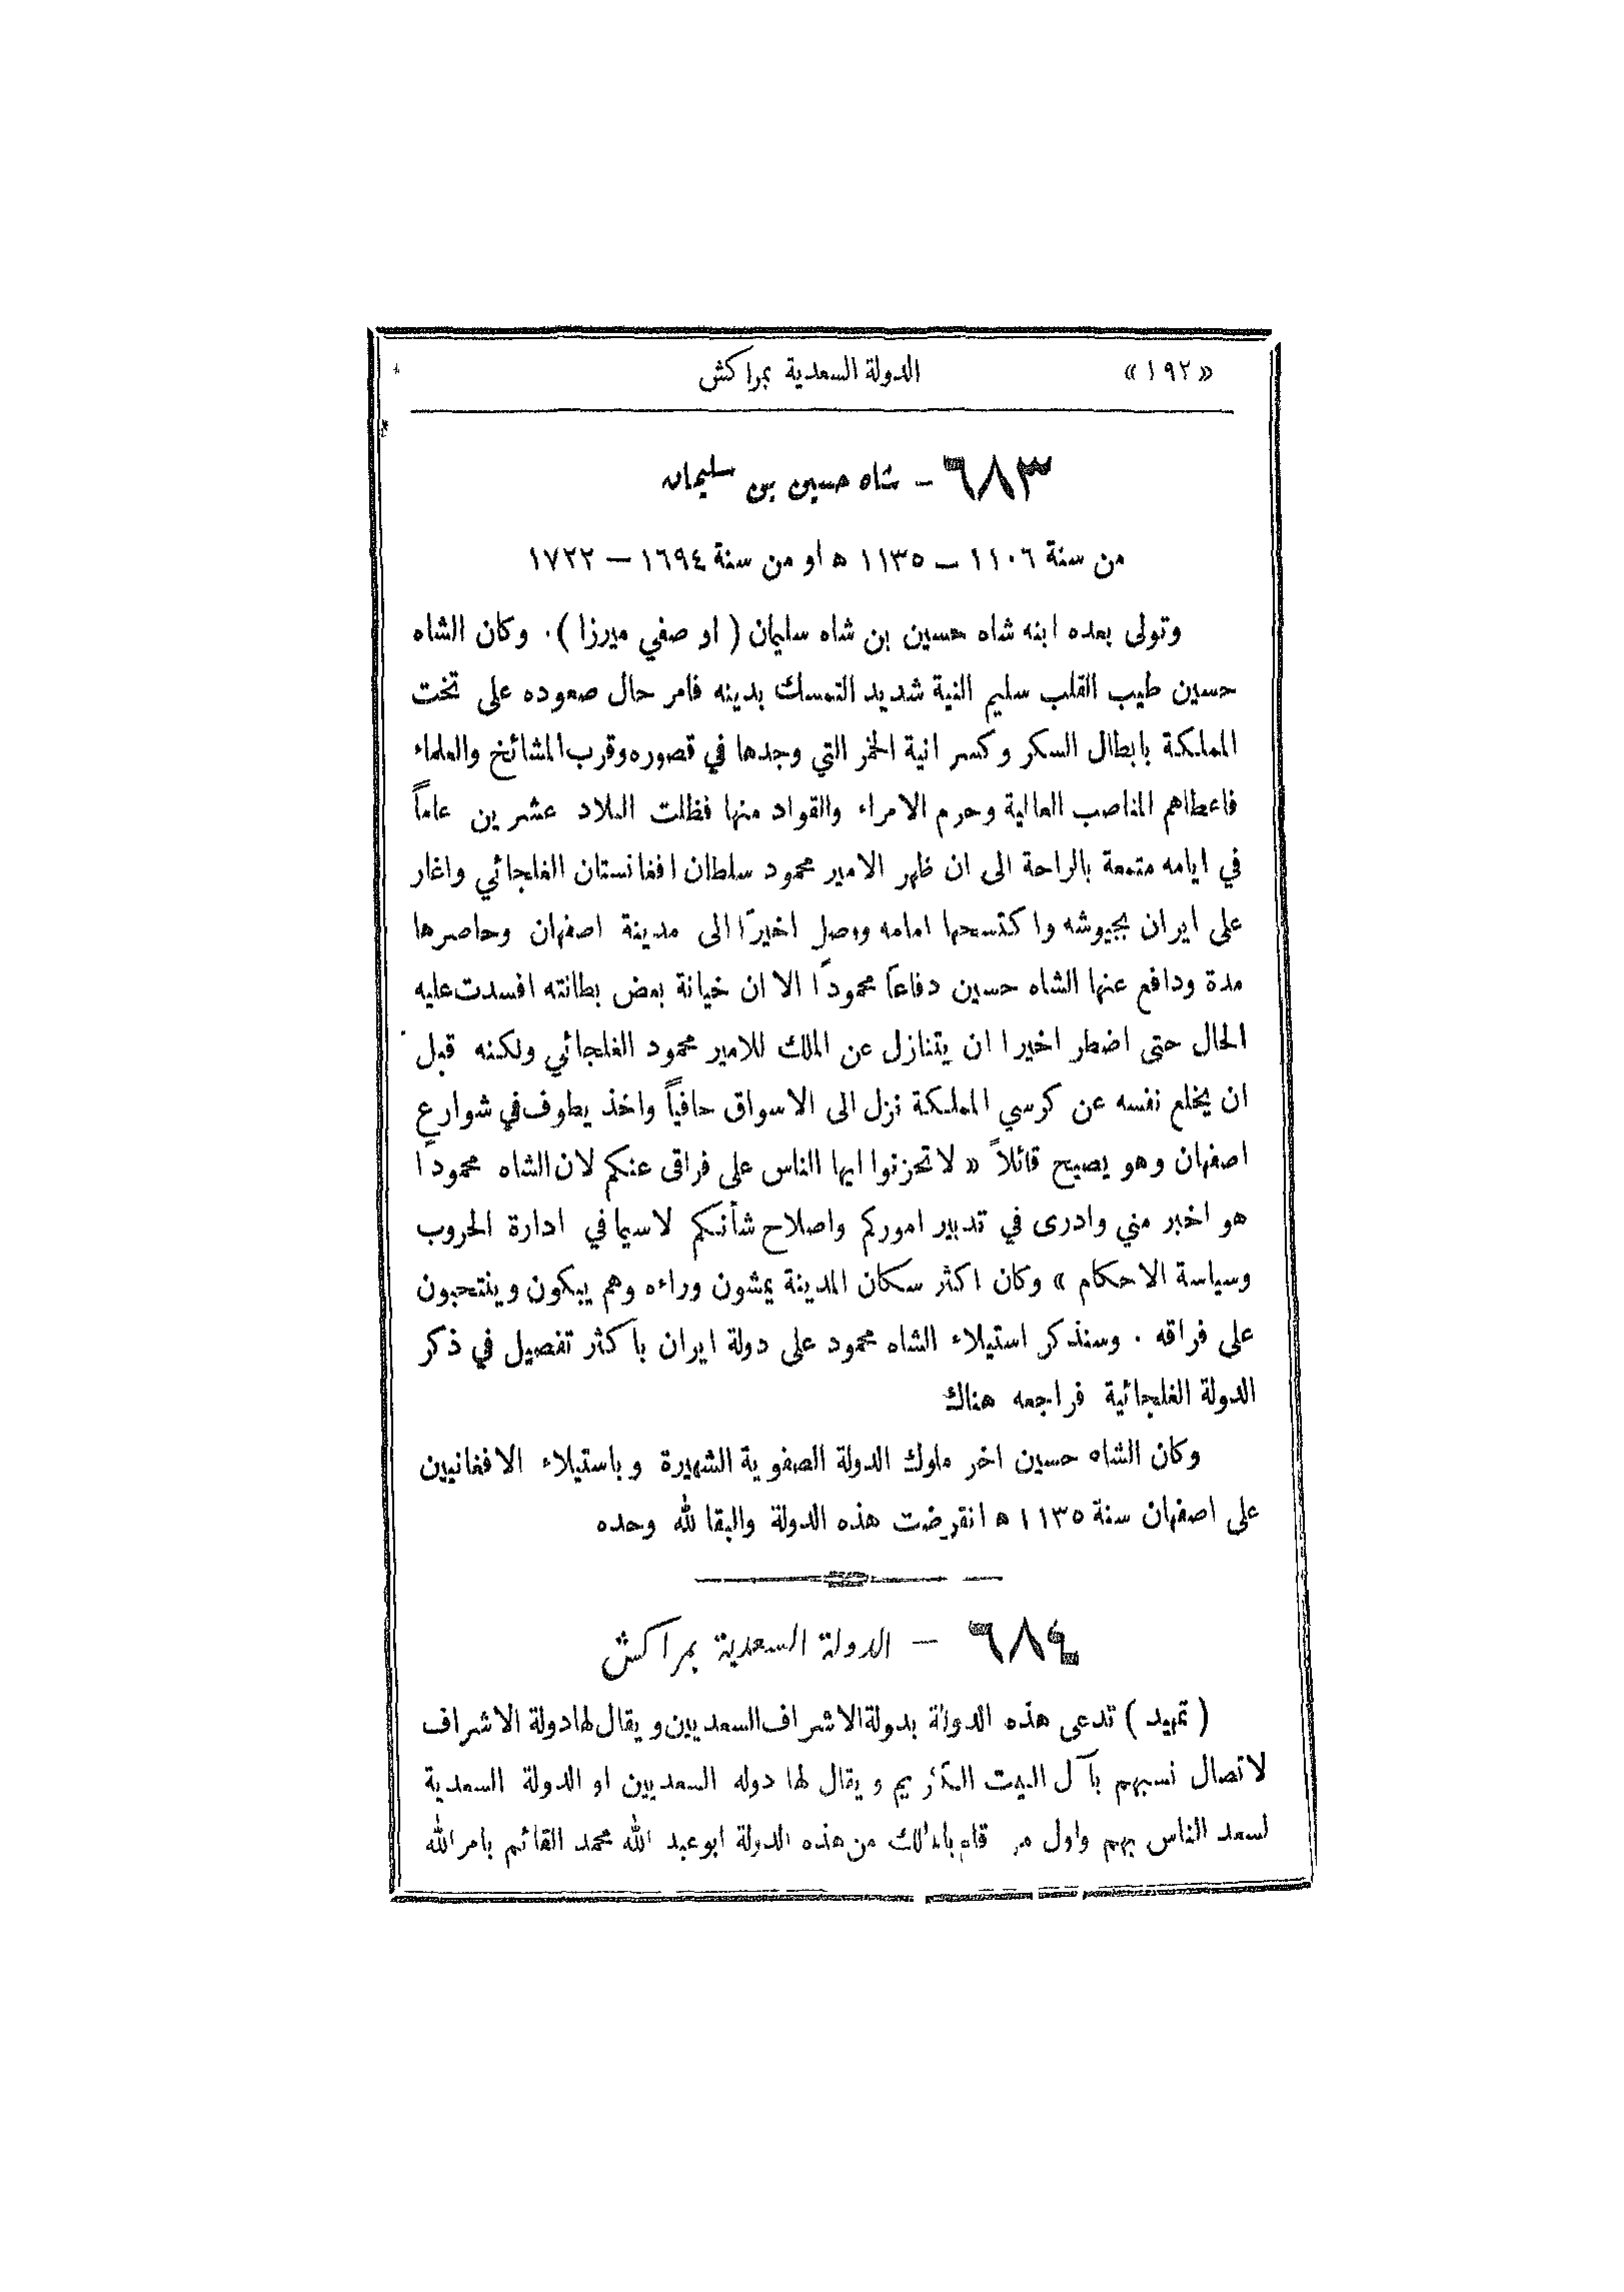 «١٩٢» الدولة السعدية بمراكش
٦٨٣ – شاه حسين بن سليمان
من سنة ١١٠٦ – ١١٣٥ ه او من سنة ١٦٩٤ – ١٧٢٢
وتولى بعده ابنه شاه حسين بن شاه سليمان ( او صفي ميرزا ). وكان الشاه
حسين طيب القلب سليم النية شديد التمسك بدينه فامر حال صعوده على تخت
المملكة بابطال السكر وكسر انية الخمر التي وجدها في قصوره وقرب المشائخ والعلماء
فاعطاهم المناصب العالية وحرم الامراء والقواد منها فظلت البلاد عشرين عاماً
في ايامه متمتعة بالراحة الى ان ظهر الامير محمود سلطان افغانستان الغلجائي واغار
على ايران بجيوشه واكتسحها امامه ووصل اخيرًا الى مدينة اصفهان وحاصرها
مدة ودافع عنها الشاه حسين دفاعًا محمودًا الا ان خيانة بعض بطانته افسدت عليه
الحال حتى اضطر اخيرا ان يتنازل عن الملك للامير محمود الغلجائي ولكنه قبل
ان يخلع نفسه عن كرسي المملكة نزل الى الاسواق حافياً واخذ يطوف في شوارع
اصفهان وهو يصيح قائلاً « لا تحزنوا ايها الناس على فراقى عنكم لان الشاه محمودًا
هو اخبر مني وادرى في تدبير اموركم واصلاح شأنكم لاسيما في ادارة الحروب
وسياسة الاحكام » وكان اكثر سكان المدينة يمشون وراءه وهم يبكون وينتحبون
على فراقه . وسنذكر استيلاء الشاه محمود على دولة ايران باكثر تفصيل في ذكر
الدولة الغلجائية فراجعه هناك
وكان الشاه حسين اخر ملوك الدولة الصفوية الشهيرة وباستيلاء الافغانيين
على اصفهان سنة ١١٣٥ ه انقرضت هذه الدولة والبقا لله وحده
٦٨٤ – الدولة السعدية بمراكش
( تمهيد ) تدعى هذه الدولة بدولة الاشراف السعديين ويقال لها دولة الاشراف
لاتصال نسبهم بآل البيت الكريم ويقال لها دوله السعديين او الدولة السعدية
لسعد الناس بهم واول من قام بالملك من هذه الدولة ابو عبد الله محمد القائم بامر الله